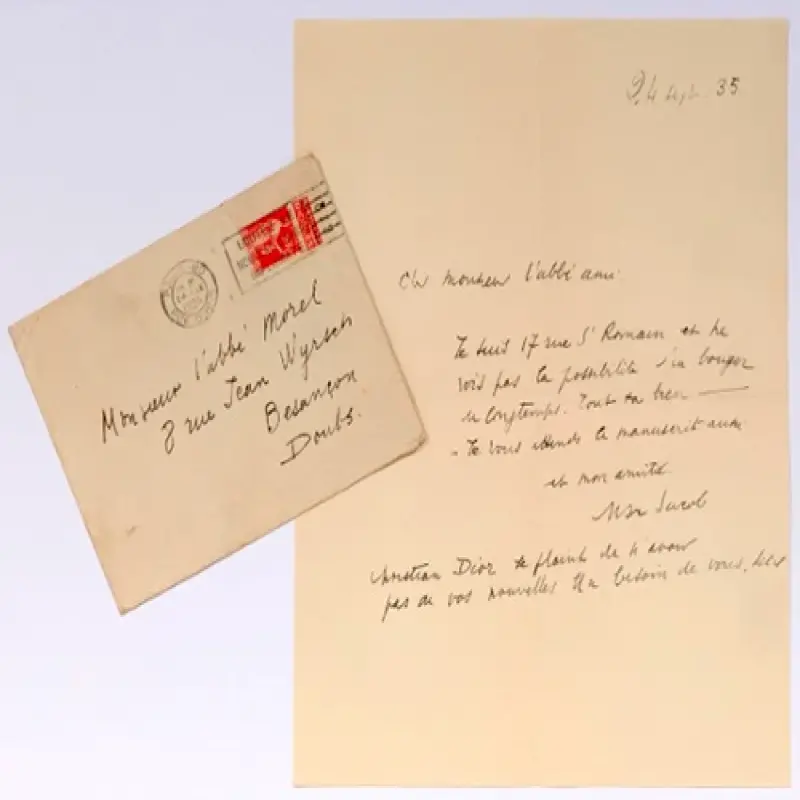 Monsieur l'abbé Morel
8 rue Jean Wyrsch
Besançon
Doubs.
24 sept. 35
Ch monsieur l'abbé ami
Je suis 17 rue St Romain et ne
vois pas la possibilité d'en bouger
de longtemps. Tout va bien —
- Je vous attends le manuscrit aussi
et mon amitié
Max Jacob
Christian Dior se plaint de n'avoir
pas de vos nouvelles Un besoin de vous,